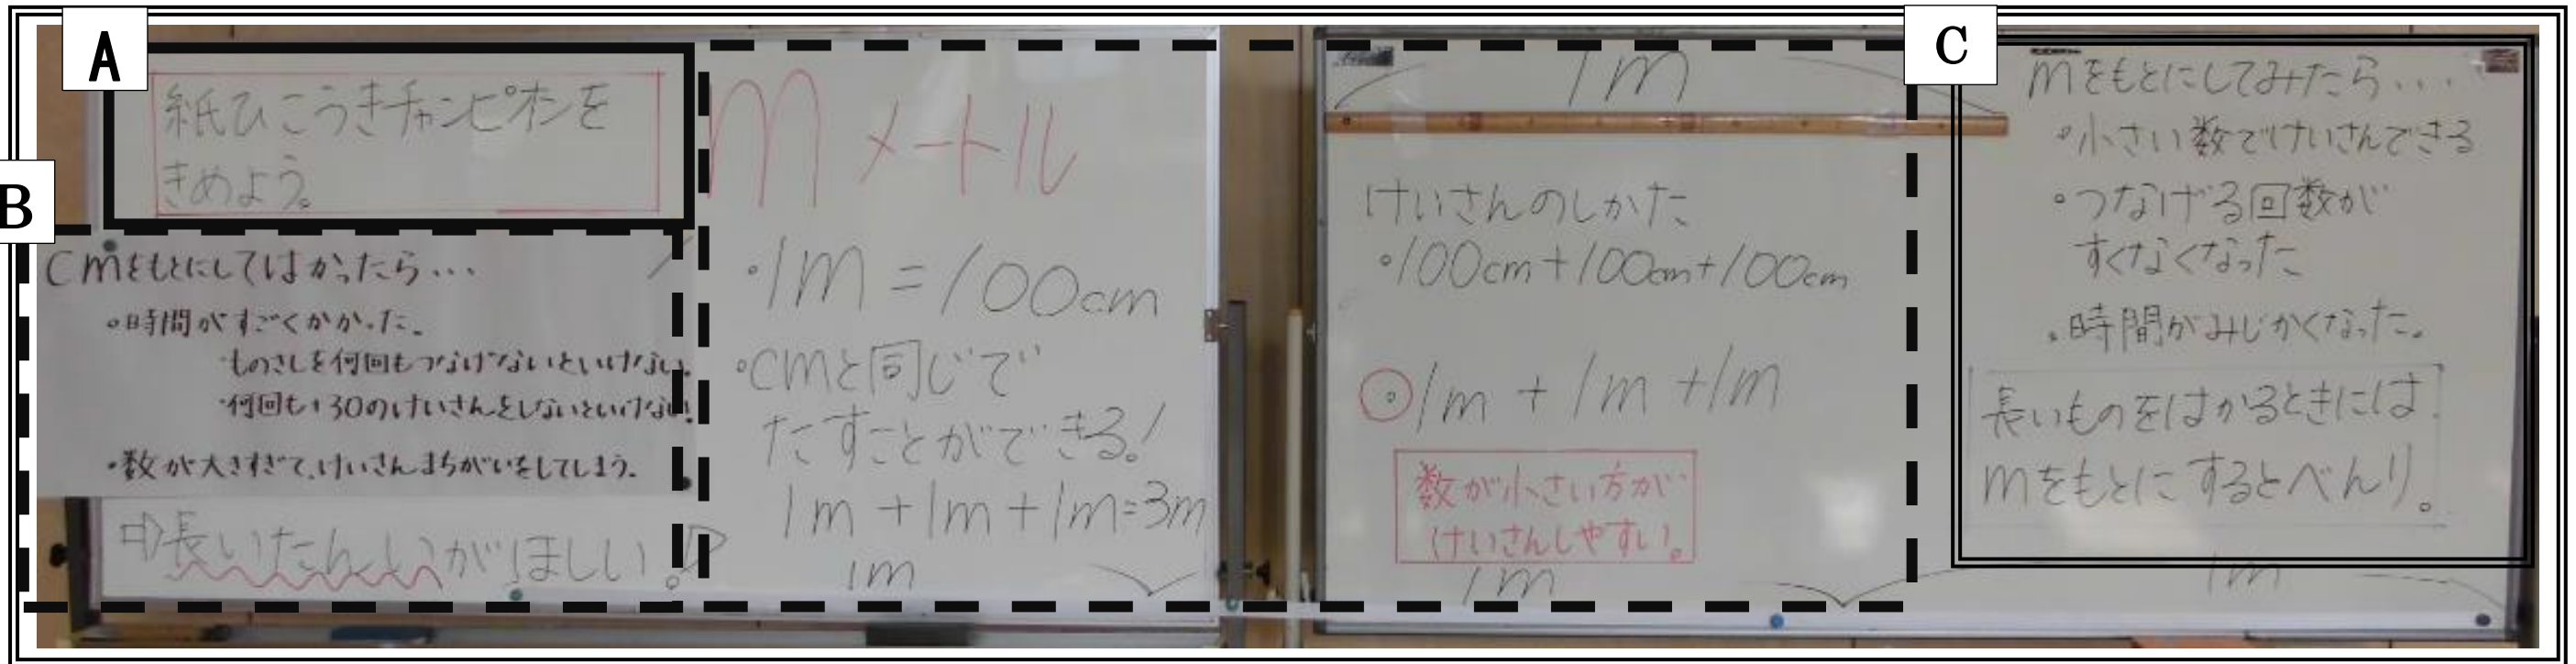 A
紙ひこうきチャンピオンを
きめよう。
B
cmをもとにしてはかったら…
。時間がすごくかかった。
・ものさしを何回もつなげないといけない。
・何回も+30のけいさんをしないといけない!
・数が大きすぎて、けいさんまちがいをしてしまう。
⇨長いたんいがほしい。⇨
m メートル
・1m=100cm
・cmと同じで
たすことができる!
1m+1m+1m=3m
1m
1m
けいさんのしかた
・100cm+100cm+100cm
・1m+1m+1m
数が小さい方が
けいさんしやすい。
1m
C
mをもとにしてみたら...
・小さい数でけいさんできる
・つなげる回数が
すくなくなった
・時間がみじかくなった。
長いものをはかるときには
mをもとにするとべんり。
1m